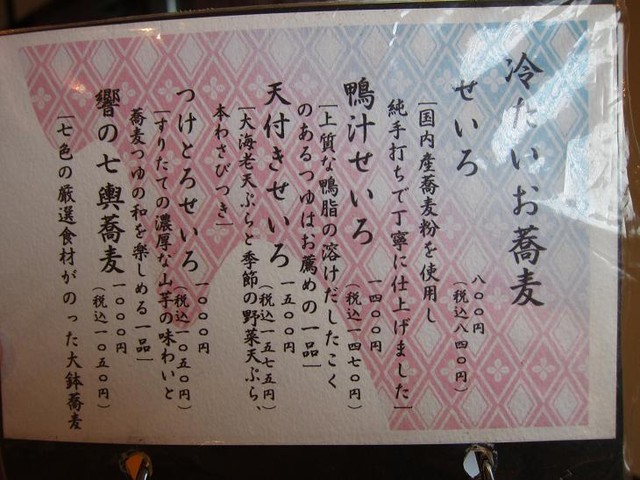 冷たいお蕎麦
せいろ
八〇〇円
（税込八四〇円）
［国内産蕎麦粉を使用し
純手打ちで丁寧に仕上げました］
鴨汁せいろ
一四〇〇円
（税込一四七〇円）
［上質な鴨脂の溶けだしたこく
のあるつゆはお薦めの一品］
天付きせいろ
一五〇〇円
（税込一五七五円）
［大海老天ぷらと季節の野菜天ぷら、
本わさびつき］
つけとろせいろ
一〇〇〇円
（税込一〇五〇円）
［すりたての濃厚な山芋の味わいと
蕎麦つゆの和を楽しめる一品］
響の七輿蕎麦
一〇〇〇円
（税込一〇五〇円）
［七色の厳選食材がのった大鉢蕎麦